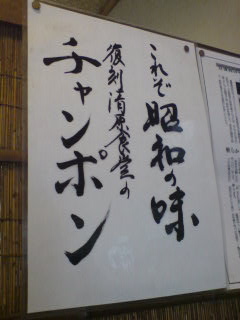 これぞ昭和の味
復刻清原食堂の
チャンポン